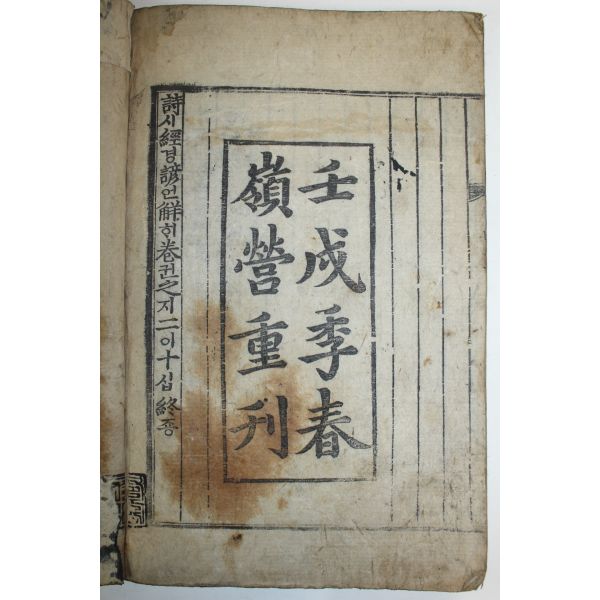 壬戌季春
嶺營重刊
詩시經경諺언觧ᄒᆡ卷권之지二이十십終종